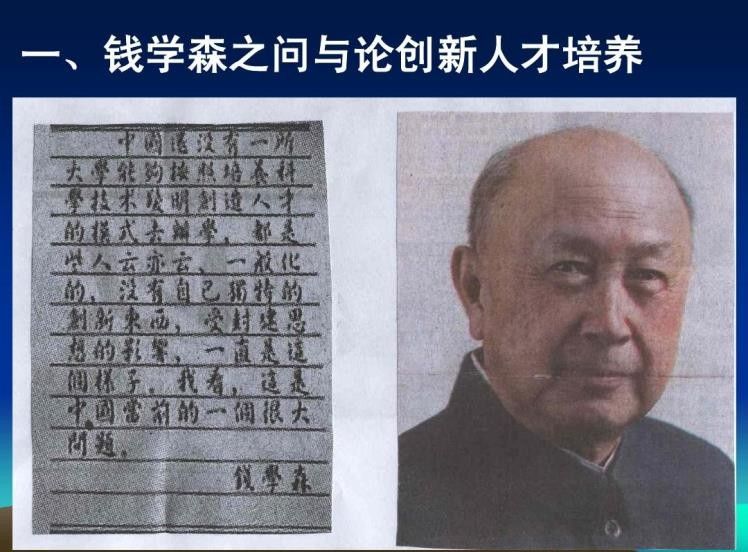 一、钱学森之问与论创新人才培养
中國還没有一所
大學能夠按照培養科
學技术發明創造人才
的模式去辦學，都是
些人云亦云、一般化
的，没有自己獨特的
創新東西，受封建思
想的影響，一直是這
個樣子。我看，這是
中國當前的一個很大
問題。
錢學森